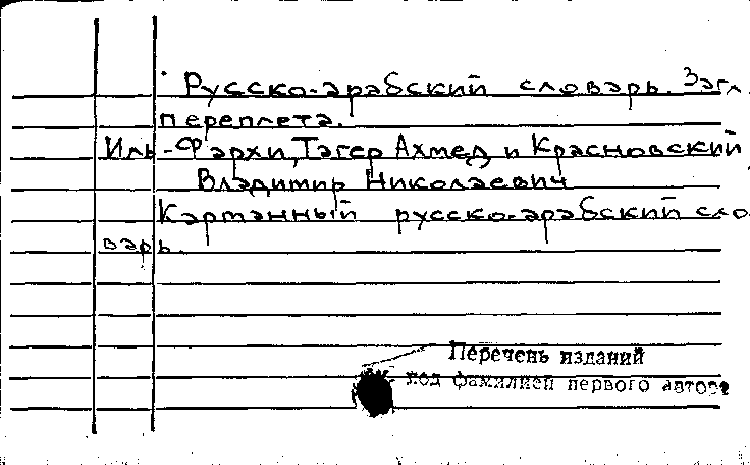 Русско-арабский словарь. Загл.
переплета.
Иль-Фархи, Тагер Ахмед и Красновский
Владимир Николаевич
Карманный русско-арабский сло-
варь.
Перечень изданий
под фамилией первого автора